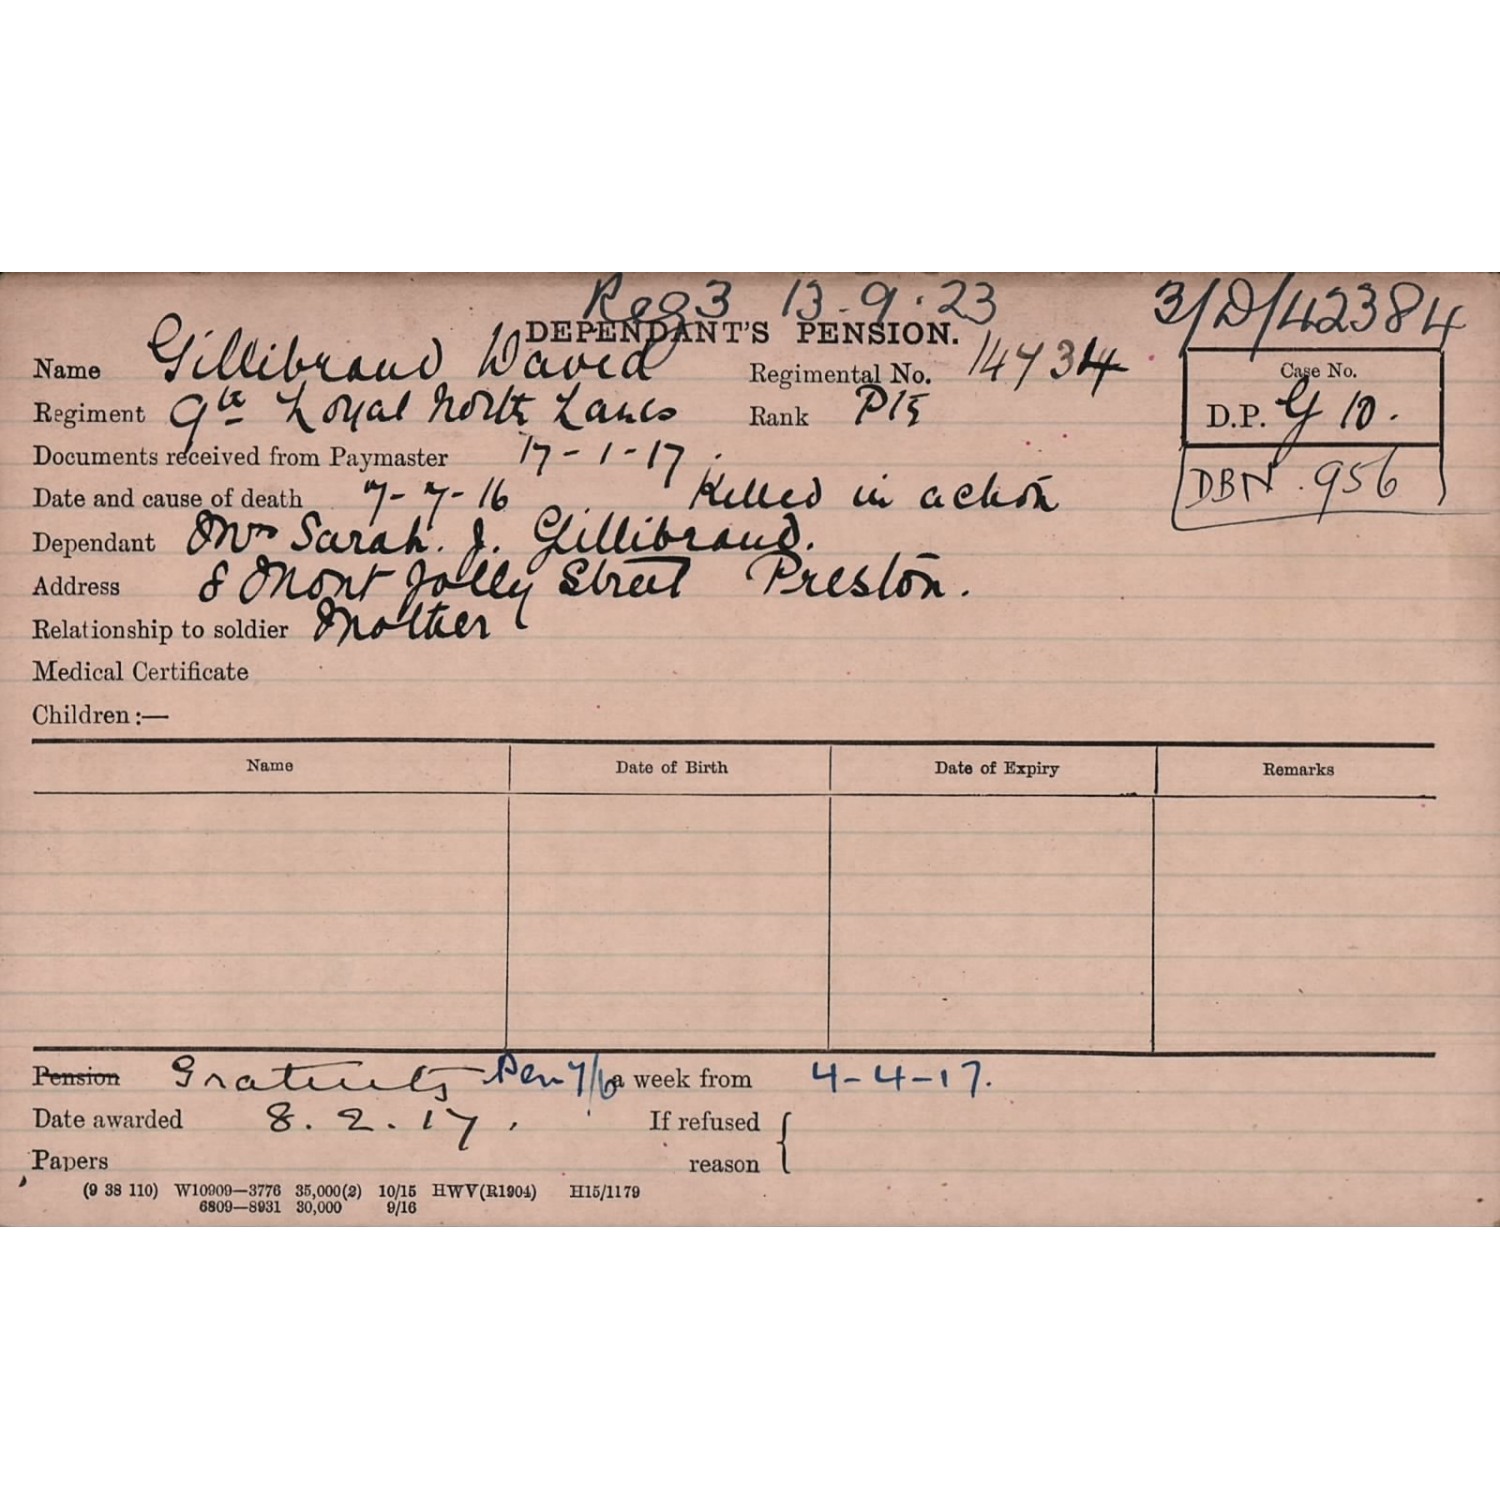 Reg 3 13-9-23 3/D/42384
DEPENDANT'S PENSION.
Name Gillibrand David Regimental No. 14734 Case No.
Regiment 9th Loyal North Lancs Rank Pte D.P. G 10.
Documents received from Paymaster 17-1-17.
Date and cause of death 7-7-16 Killed in action DBN. 956
Dependant Mrs Sarah. J. Gillibrand.
Address 8 Mont Jolly Street Preston.
Relationship to soldier Mother
Medical Certificate
Children:—
Name Date of Birth Date of Expiry Remarks
Pension Gratuity Pen 7/6 a week from 4-4-17.
Date awarded 8.2.17. If refused
Papers reason
(9 38 110) W10909—3776 35,000(2) 10/15 HWV(R1904) H15/1179
6809—8931 30,000 9/16